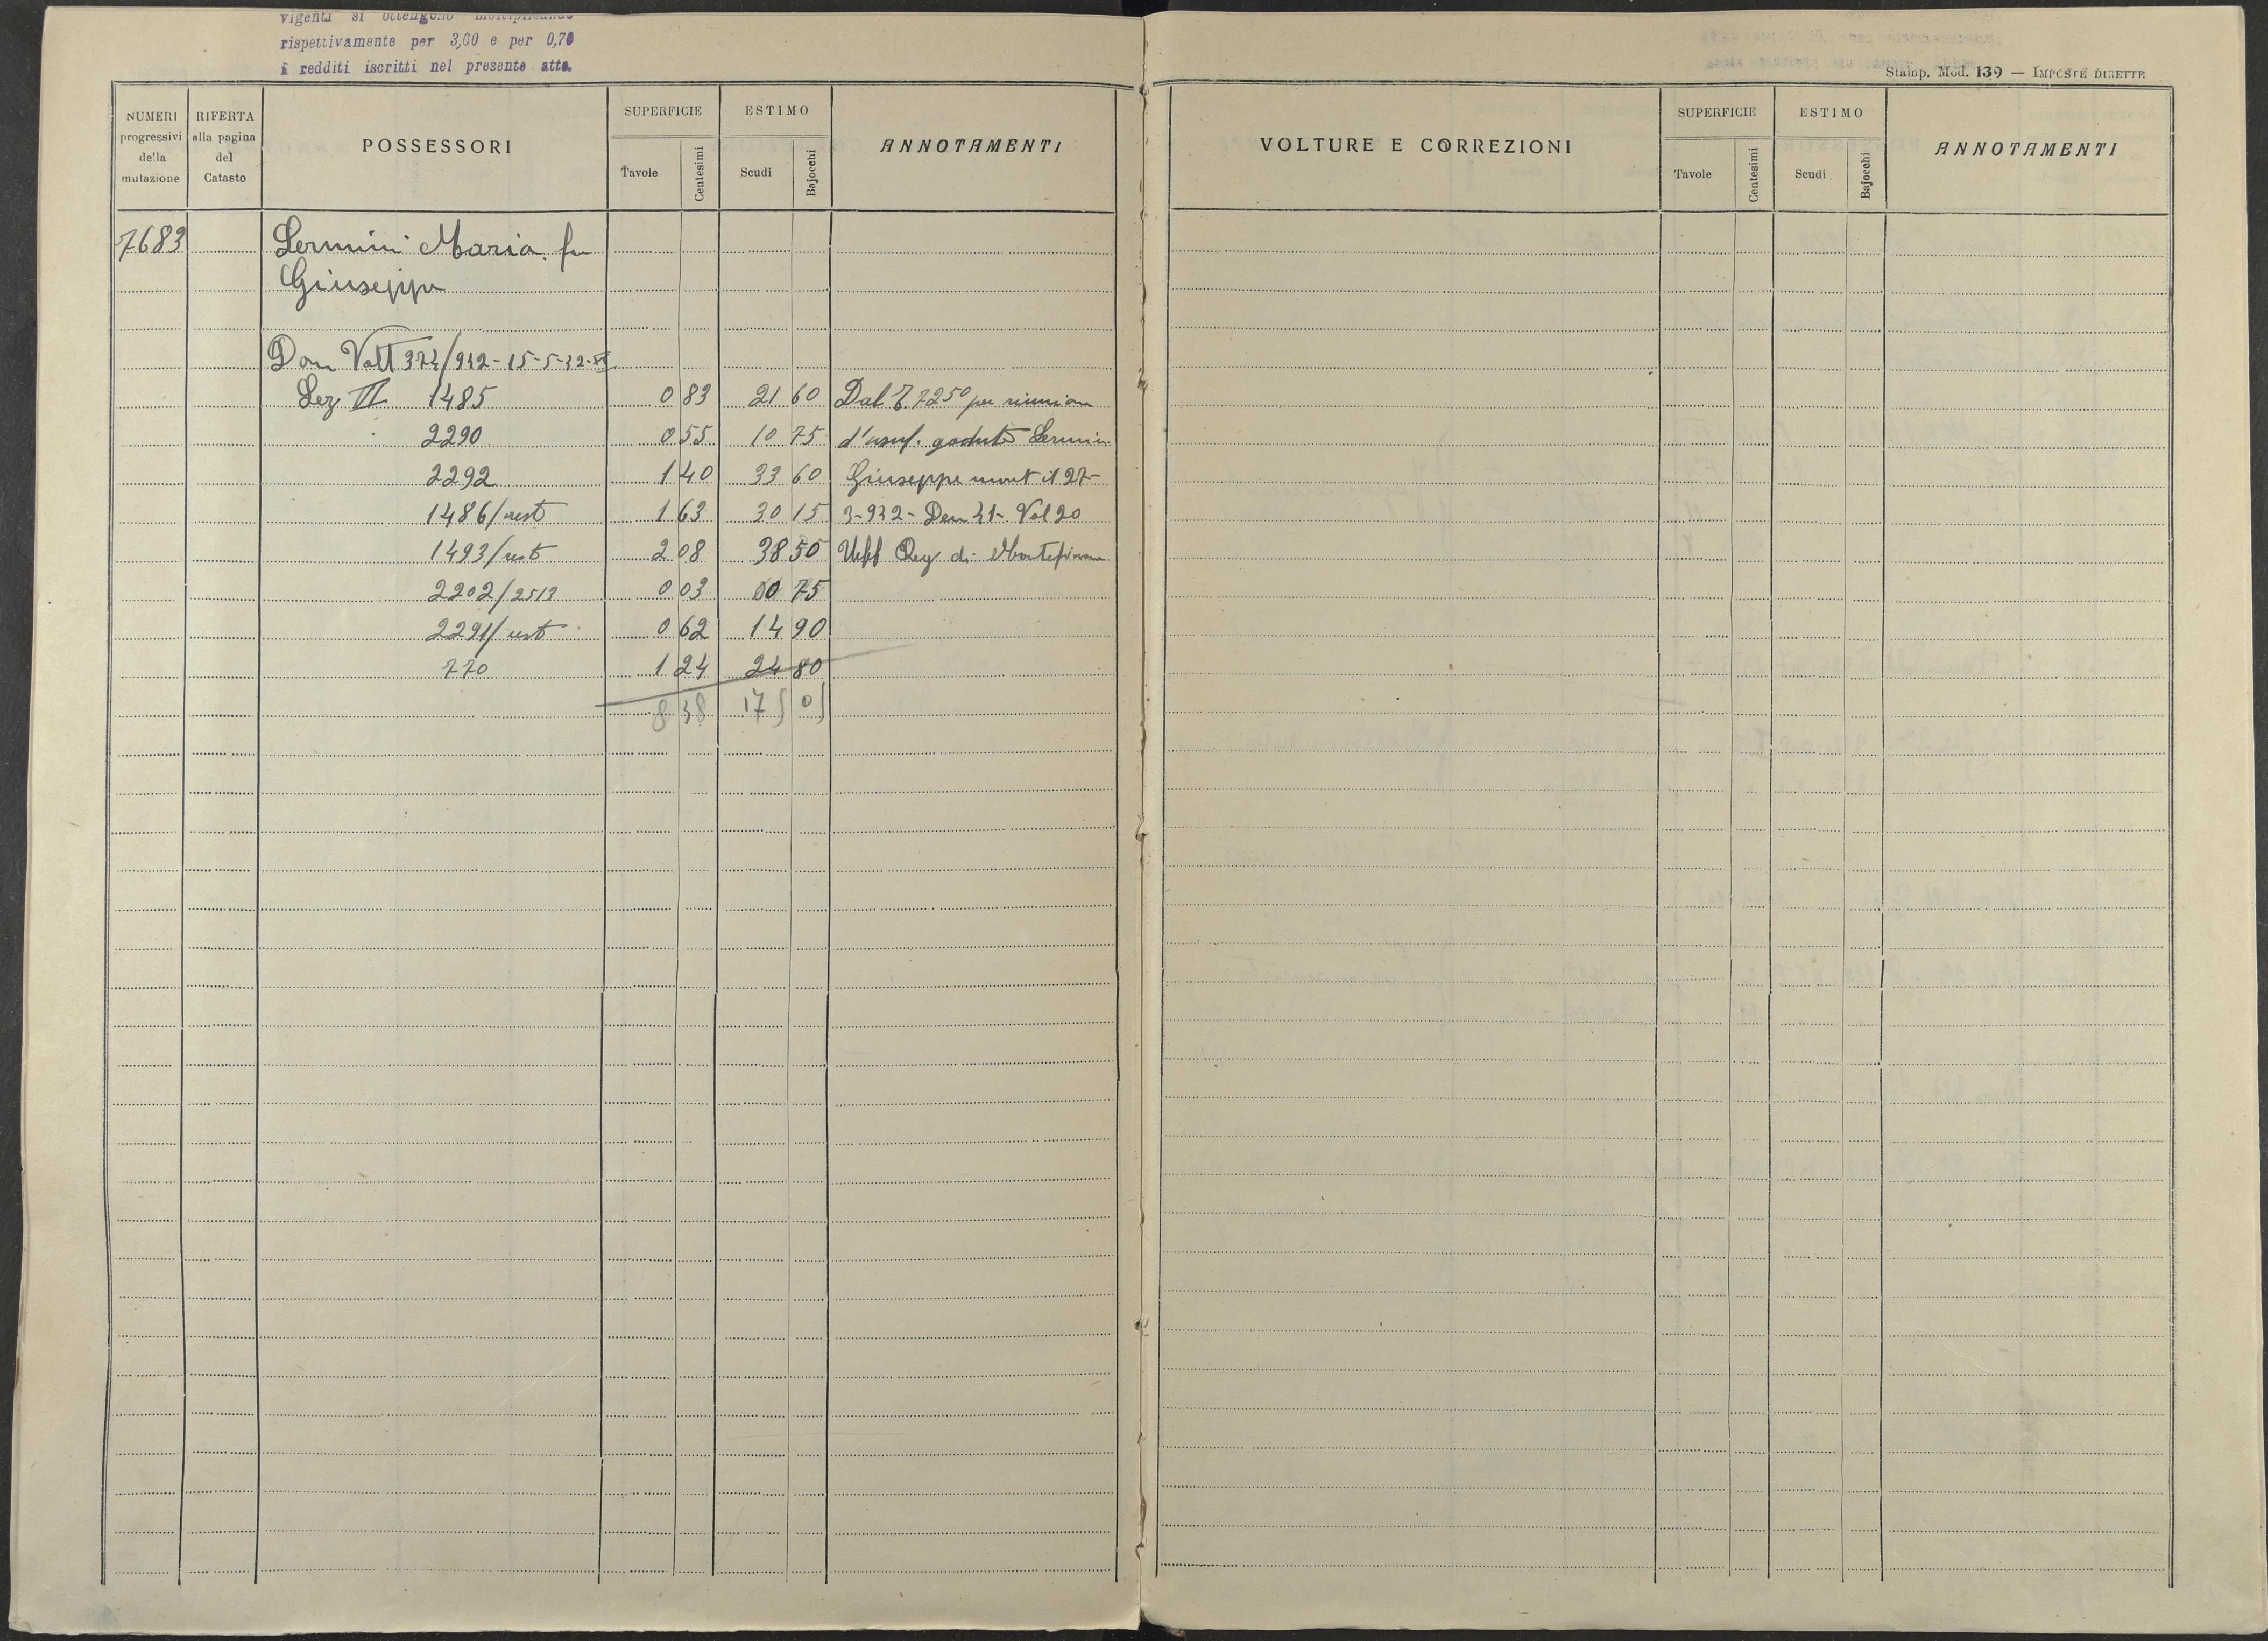 vigenti si ottengono moltiplicando
rispettivamente per 3,60 e per 0,70
i redditi iscritti nel presente atto.
Stamp. Mod. 139 — IMPOSTE DIRETTE
NUMERI progressivi della mutazione
RIFERTA alla pagina del Catasto
POSSESSORI
SUPERFICIE
Tavole
Centesimi
ESTIMO
Scudi
Bajocchi
ANNOTAMENTI
VOLTURE E CORREZIONI
SUPERFICIE
Tavole
Centesimi
ESTIMO
Scudi
Bajocchi
ANNOTAMENTI
7683 Maria fu
Giuseppe
Dom Volt /932-15-5-32-
Sez VI 1485 0 83 21 60 Dal 7250 per riunione
2290 0 55 10 75 d'usuf. goduto
2292 1 40 33 60 Giuseppe mort il 27-
1486/rest 1 63 30 15 3-932- Den 31- Vol 20
1493/rest 2 08 38 50 Uff Reg di
2202/2513 0 03 00 75
2291/rest 0 62 14 90
770 1 24 24 80
8 38 175 05